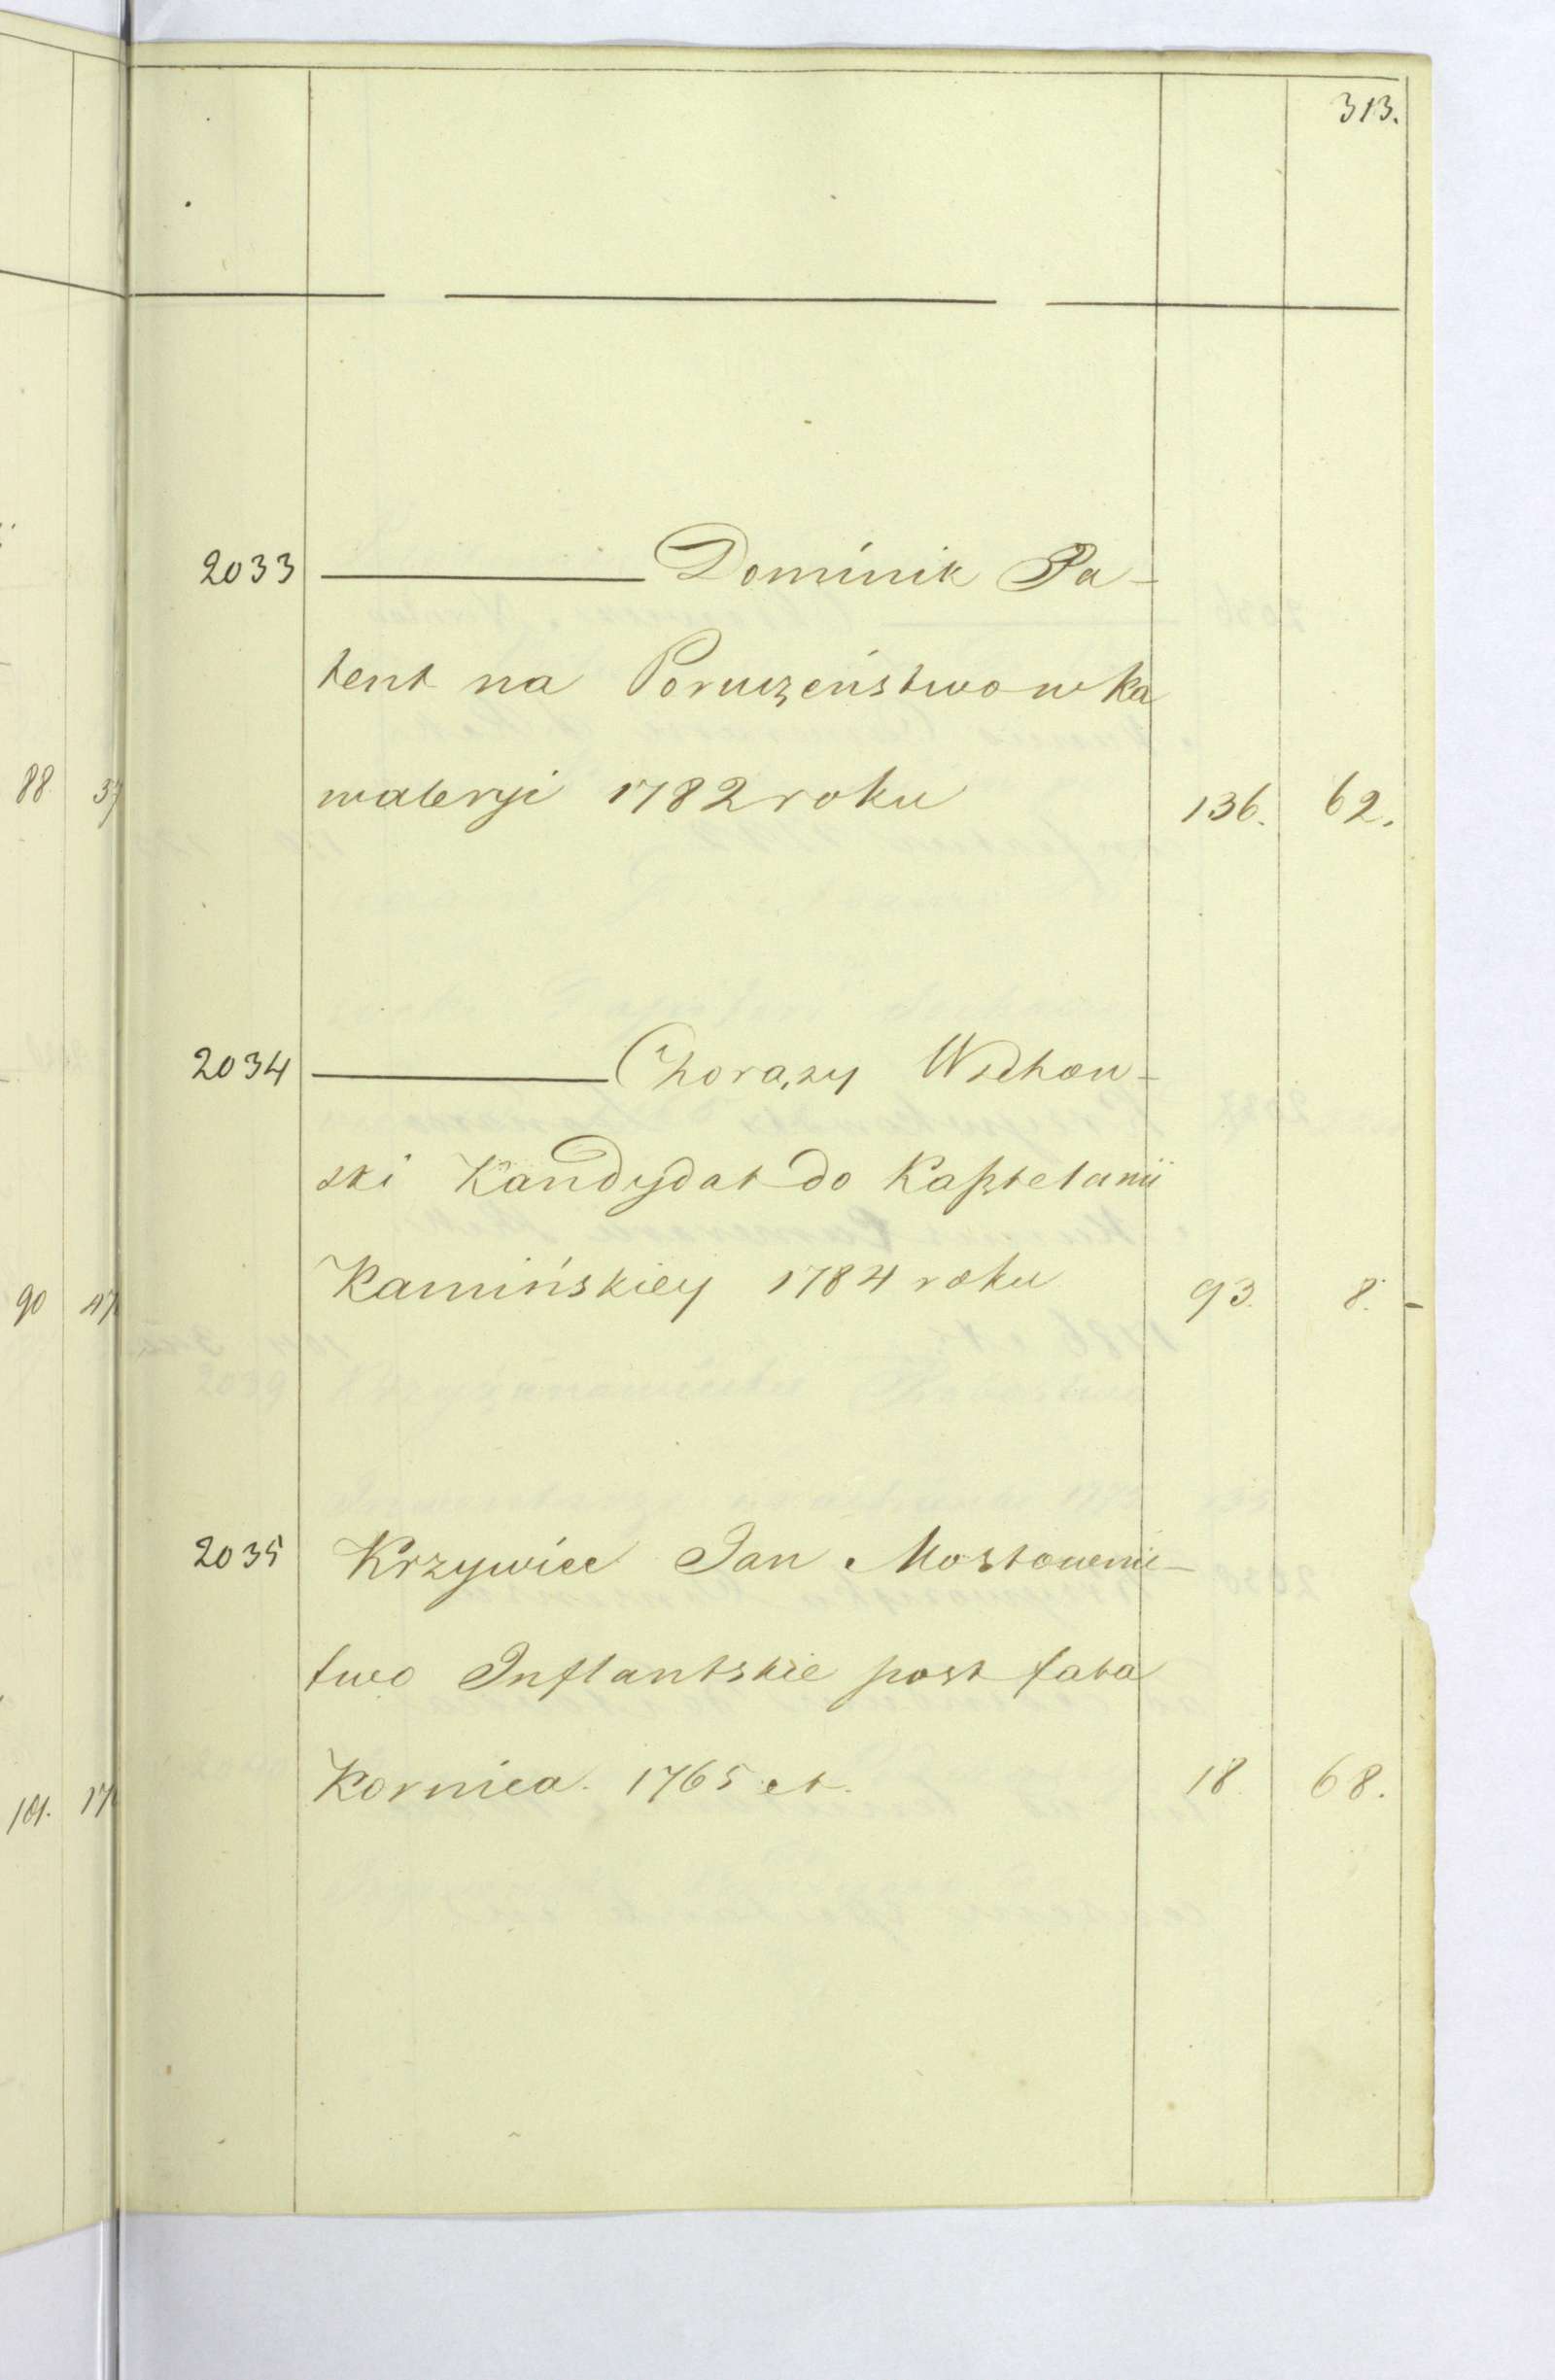 313.
2033 ——— Dominik Pa-
tent na Poruczeństwo w ka
waleryi 1782 roku 136. 62.
2034 ——— Chorąży Wschow-
ski Kandydat do Kasztelanii
Kamińskiey 1784 roku 93. 8.-
2035 Krzywiec Jan Mostownic-
two Inflantskie post fata
Kornica. 1765 et. 18 68.
88 37
90 47
101. 17